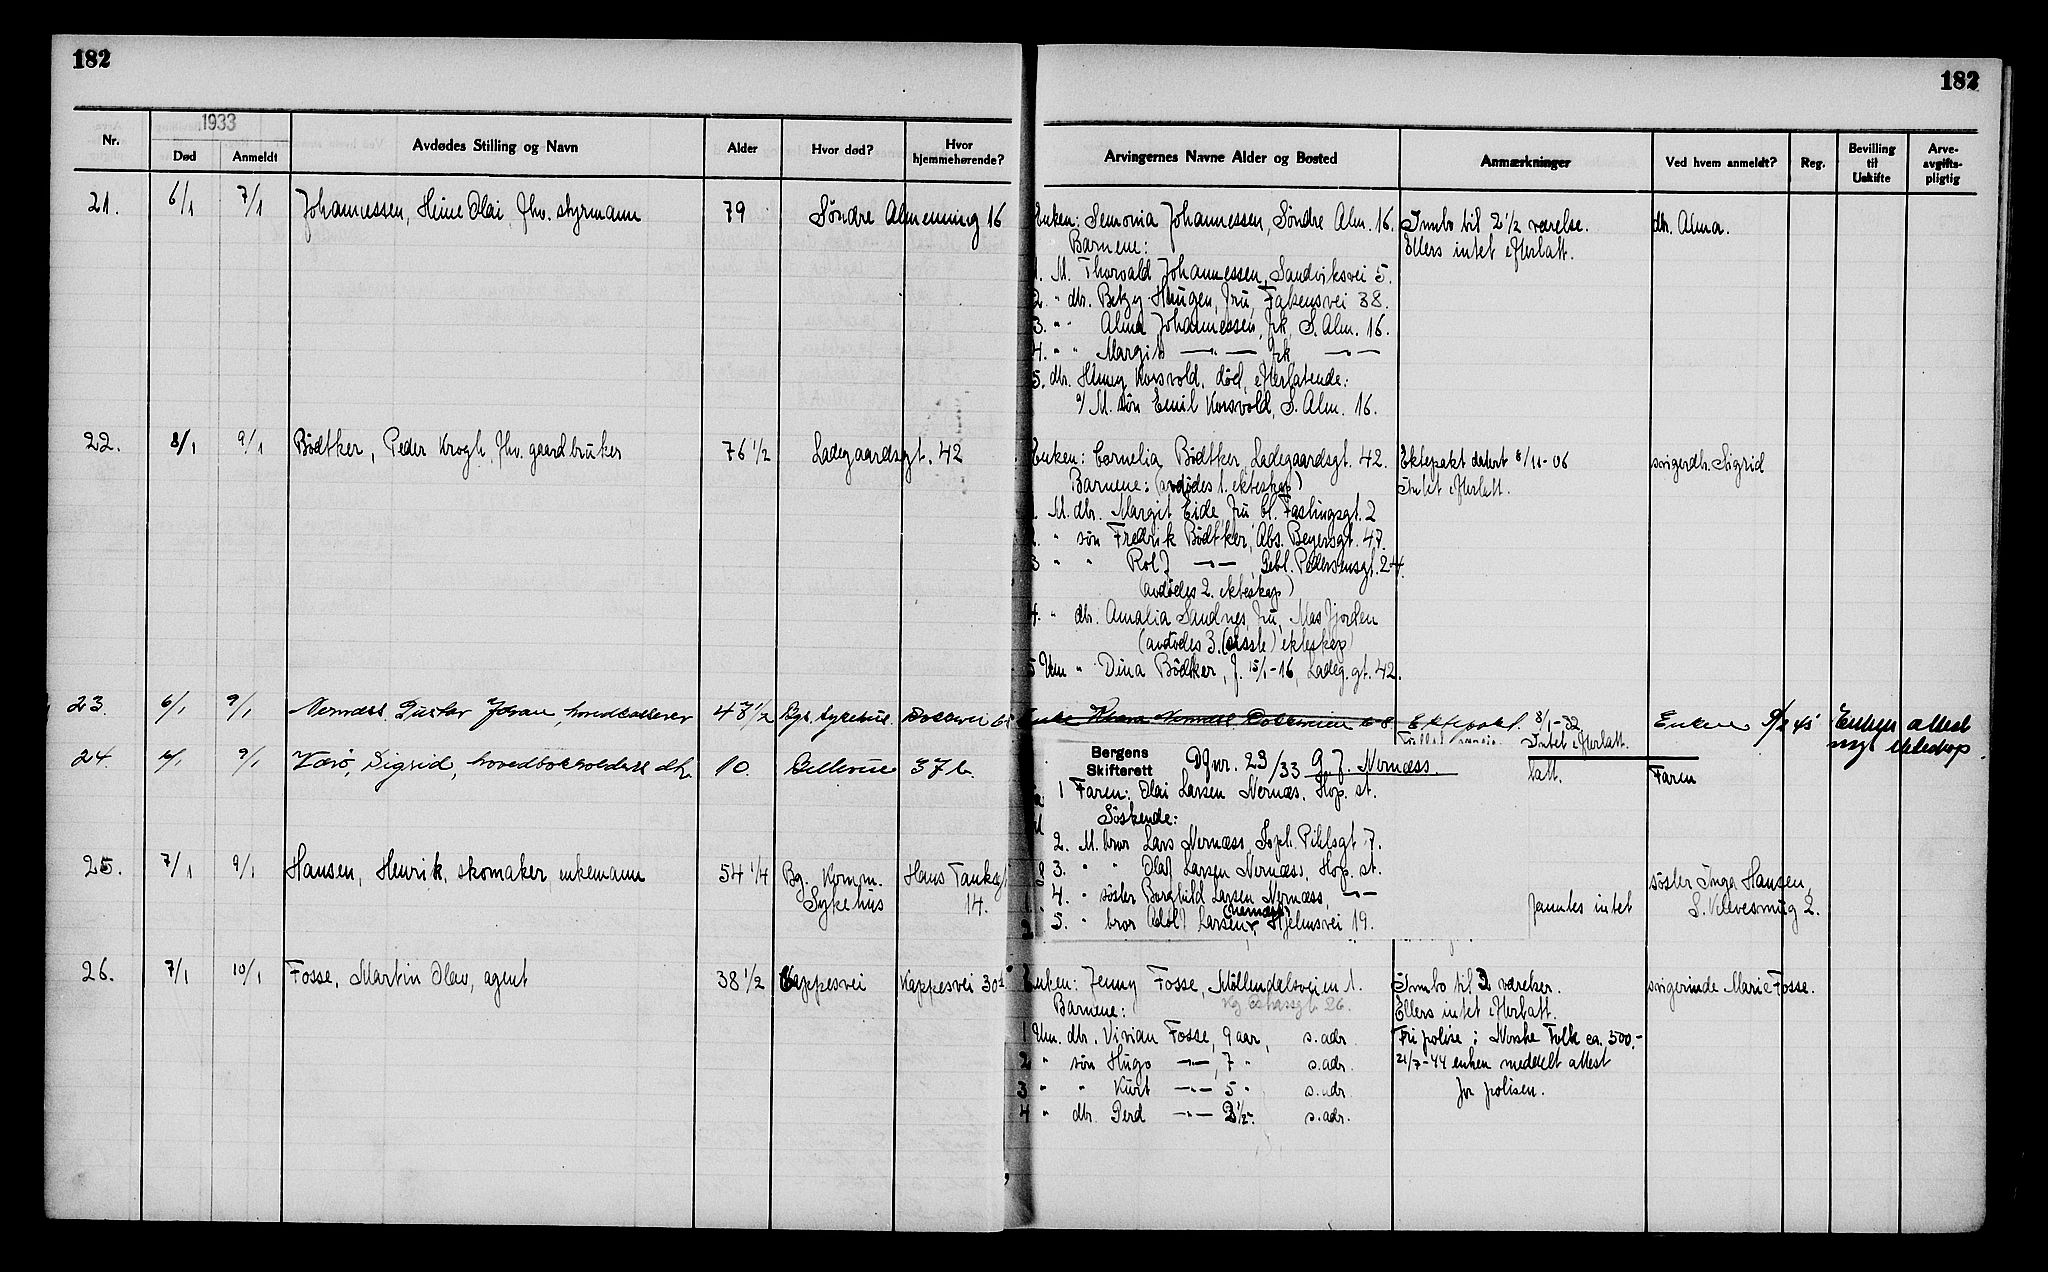 182
182
1933
Nr. Død Anmeldt Avdødes Stilling og Navn Alder Hvor død? Hvor hjemmehørende? Arvingernes Navne Alder og Bosted Anmærkninger Ved hvem anmeldt? Reg. Bevilling til Uskifte Arve-avgifts-pligtig
21. 6/1 7/1 Johannessen, Heine Olai, fhv. styrmann 79 Søndre Almenning 16
Enken: Semonia Johannessen, Søndre Alm. 16. Innbo til 2 1/2 værelse. dtr. Alma.
Barnene: Ellers intet efterlatt.
1. M. Thorvald Johannessen, Sandviksvei 5.
2. " dtr. Betzy Haugen, fru, Falsensvei 38.
3. " " Alma Johannessen, frk, S. Alm. 16.
4. " " Margit —"— frk —"—
5. dtr. Henny Korsvold, død, efterlatende:
a/ M. søn Emil Korsvold, S. Alm. 16.
22. 8/1 9/1 Bødtker, Peder Krogh, fhv. gaardbruker 76 1/2 Ladegaardsgt. 42
Enken: Cornelia Bødtker, Ladegaardsgt. 42. Ektepakt datert 8/11-06 svigerdtr. Sigrid
Barnene: (avdødes 1. ekteskap) Intet efterlatt.
1. M. dtr. Margit Eide, fru, Chr. Fastingsgt. 2
2. " søn Fredrik Bødtker, Abs. Beyersgt. 47
3 " " Rolf —"— Gebl. Pedersensgt. 24.
(avdødes 2. ekteskap)
4. " dtr. Amalia Sandnes, fru, Masfjorden
(avdødes 3. (sisste) ekteskap)
5 Um " Dina Bødtker, f. 15/1-16, Ladeg.gt. 42.
23. 6/1 9/1 Nernæss, Gustav Johan, hovedkasserer 47 1/2 Bgs. sykehus.
Ektepakt. 8/1-32 Enken 9/2 45 Enken attest
Intet efterlatt. nyt ekteskap.
24 6/1 9/1 Værø, Sigrid, hovedbokholders dtr. 10. Bellevue 37b.
latt. Faren
Bergens Skifterett D# nr. 23/33 G. J. Nernæss.
1 Faren: Olai Larsen Nernæs, Hop. st.
Søskende:
2. M. bror Lars Nernæss, Soph. Pihlsgt 7.
3. " " Olaf Larsen Nernæss, Hop. st.
4. " søster Borghild Larsen Nernæss, —"—
5. " bror Adolf Larsen (Nernæss) Hjelmsvei 19.
25. 7/1 9/1 Hansen, Henrik, skomaker, enkemann 54 1/4 Bg. Komm. Sykehus Hans Tanksgt 14.
fanntes intet søster Inga Hansen,
S. Kleivesmug 2.
26. 7/1 10/1 Fosse, Martin Olav, agent 38 1/2 Kappesvei Kappesvei 30
Enken: Jenny Fosse, Møllendalsveien 1. Innbo til 2 værelser. svigerinde Marie Fosse.
Barnene: Ellers intet efterlatt.
1 Um. dtr. Vivian Fosse, 9 aar, s. adr. Fri polise i Norske Folk ca. 500.-
2 " søn Hugo —"— 7 " s. adr. 21/7-44 enken meddelt attest
3 " " Kurt —"— 5 " s. adr. for polisen.
4 " dtr. Gerd —"— 2 1/2 " s. adr.